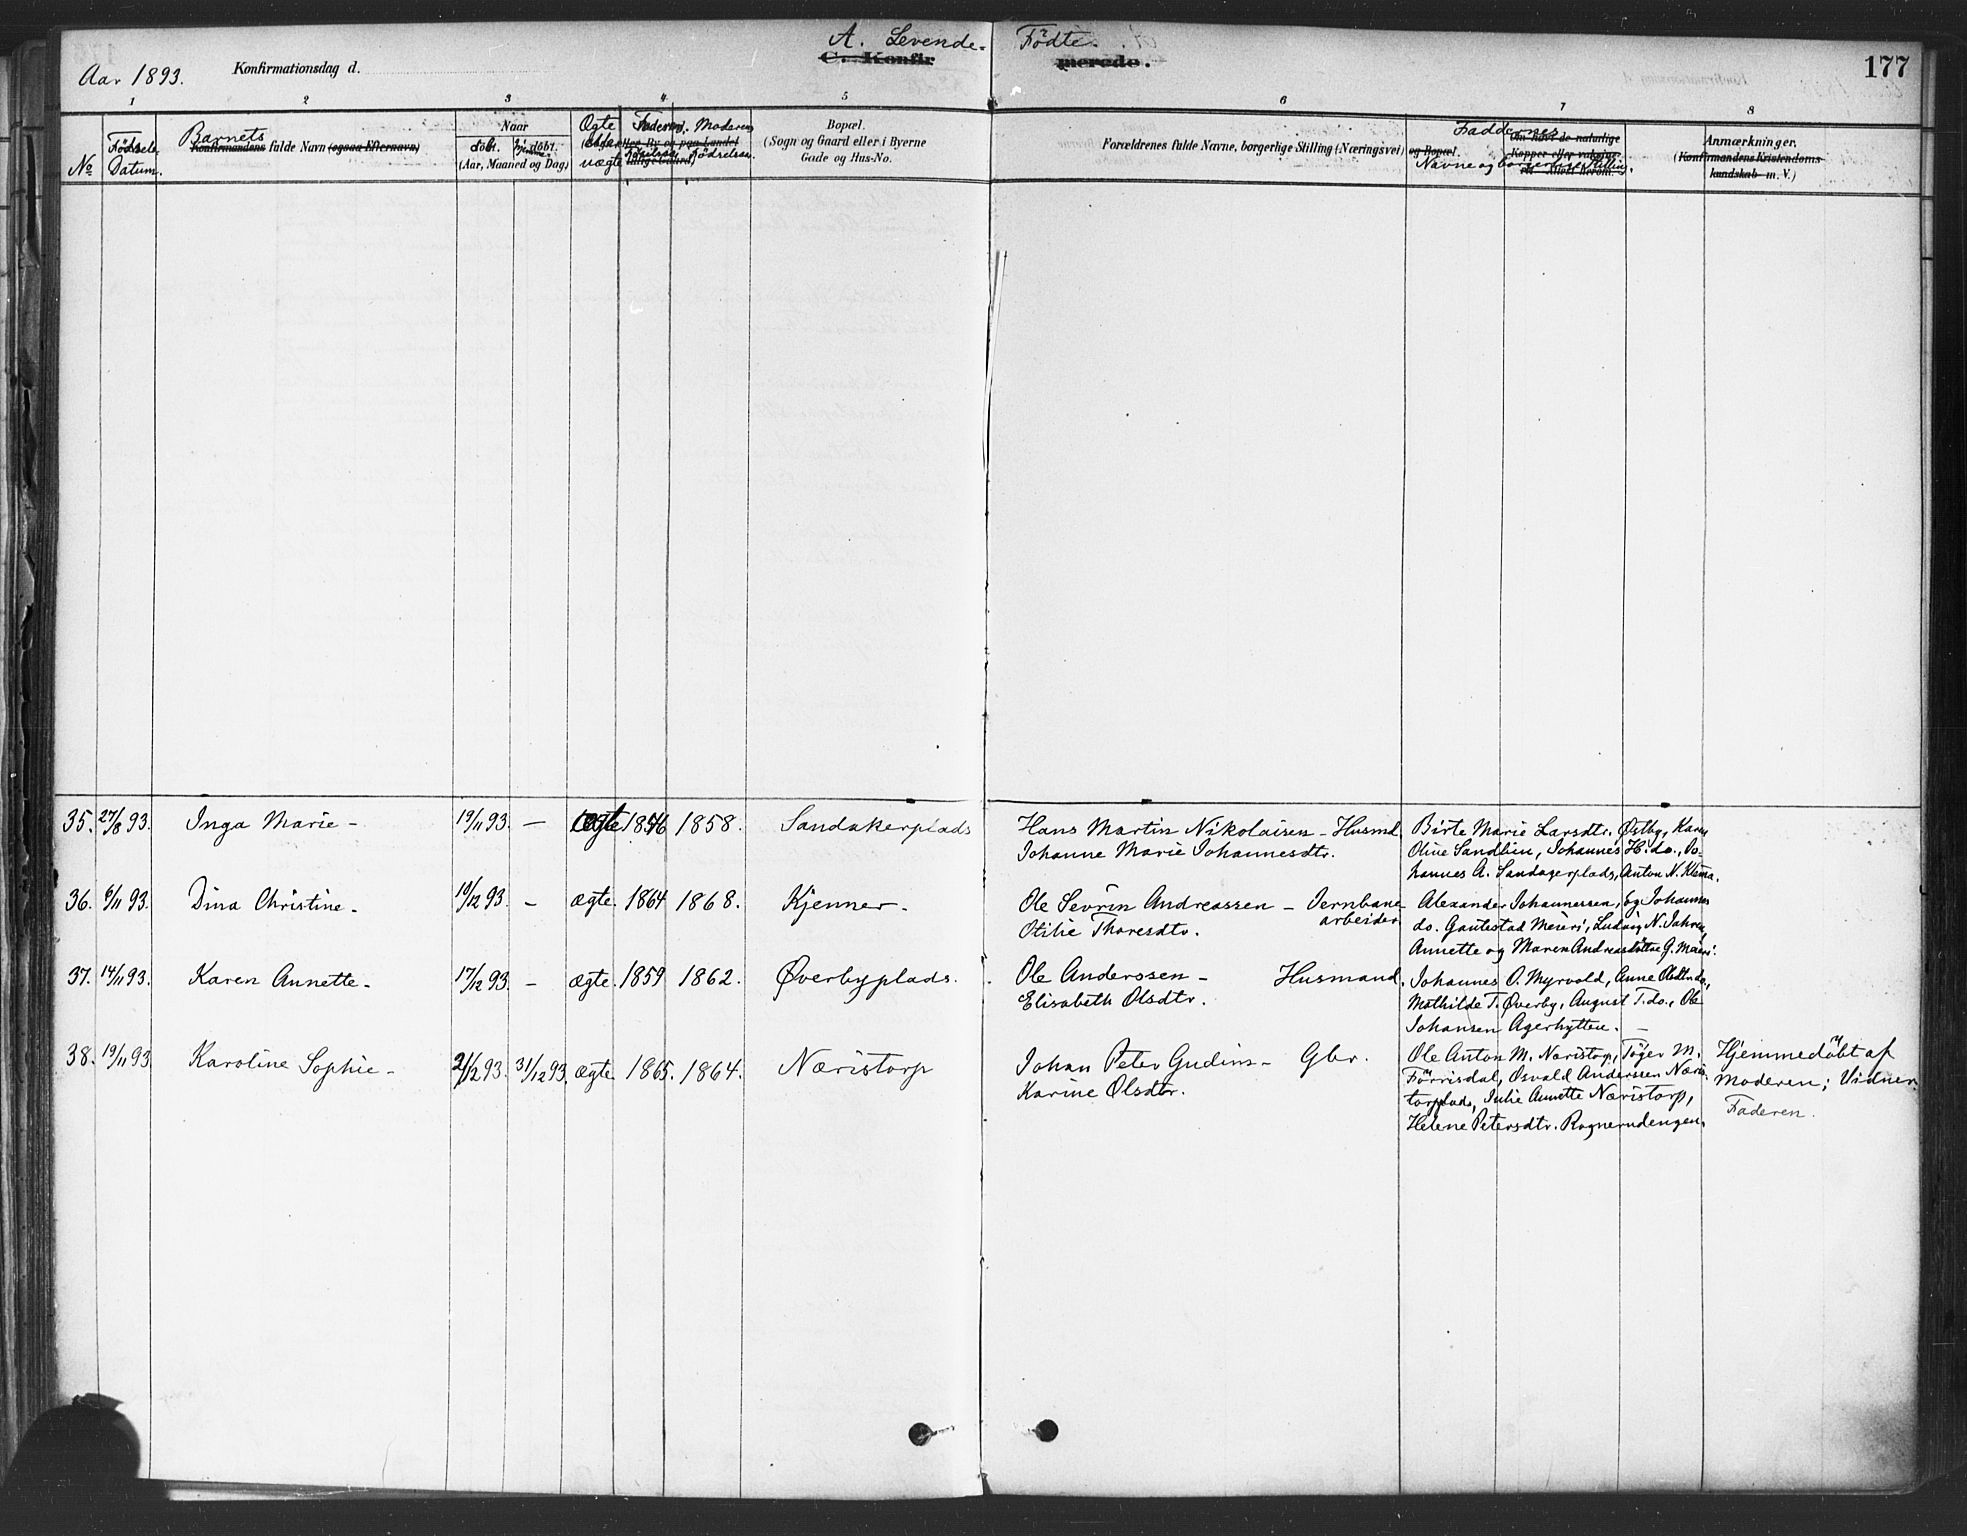 A. Levende- Fødte.
C. Konfirmerede.
177
Aar 1893.
Konfirmationsdag d.
1 2 3 4 5 6 7 8
No
Fødsels Datum.
Barnets
Konfirmandens fulde Navn (ogsaa Efternavn)
Naar
døbt.
(Aar, Maaned og Dag)
Ægte
eller
uægte
Faderens Moderens
Fødselsaar.
Bopæl.
(Sogn og Gaard eller i Byerne
Gade og Hus-No.
Forældrenes fulde Navne, borgerlige Stilling (Næringsvei) og Bopæl.
Faddernes
Navne og borgerlige Stilling.
Om havt de naturlige
Kopper eller vaksine-
Anmærkninger.
(Konfirmandens Kristendoms-
kundskab m. V.)
35. 27/8 93. Inga Marie - 19/11 93. - ægte 1858. Sandakerplads
Hans Martin Nikolaisen - Husmd.
Johanne Marie Johannesdtr.
Birte Marie Larsdtr. Østby, Karen
Oline Sandlien, Johannes H. do., Jo-
hannes A. Sandagerplads, Anton N. Klema.
36. 6/11 93. Dina Christine - 10/12 93. - ægte. 1864 1868. Kjenner.
Ole Sevrin Andreassen - Jernbane
arbeider
Otilie Thoresdtr.
Alexander Johannessen, og Johannes
do. Gautestad Meieri, Ludvig N. Jahren,
Annette og Maren Andreasdøttre G. Meieri.
37. 14/11 93. Karen Annette - 17/12 93. - ægte. 1859 1862. Øverbyplads.
Ole Anderssen - Husmand.
Elisabeth Olsdtr.
Johannes O. Myrvold, Anne Olsdtr. do.,
Mathilde T. Øverby, August T. do., Ole
Johansen Agerhytten. -
38. 19/11 93 Karoline Sophie - 21/12 93. 31/12 93. ægte 1865. 1864. Næristorp
Johan Peter Gudim - Gbr.
Karine Olsdtr.
Ole Anton M. Næristorp, Tøger M.
Förrisdal, Osvald Anderssen Næris-
torplads, Julie Annette Næristorp,
Helene Petersdtr. Rognerudengen.
Hjemmedøbt af
Moderen; Vidner
Faderen.